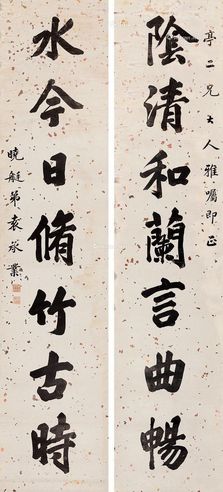 亭二兄大人雅囑即正
陰清和蘭言曲暢
水今日脩竹古時
曉艇弟袁承業